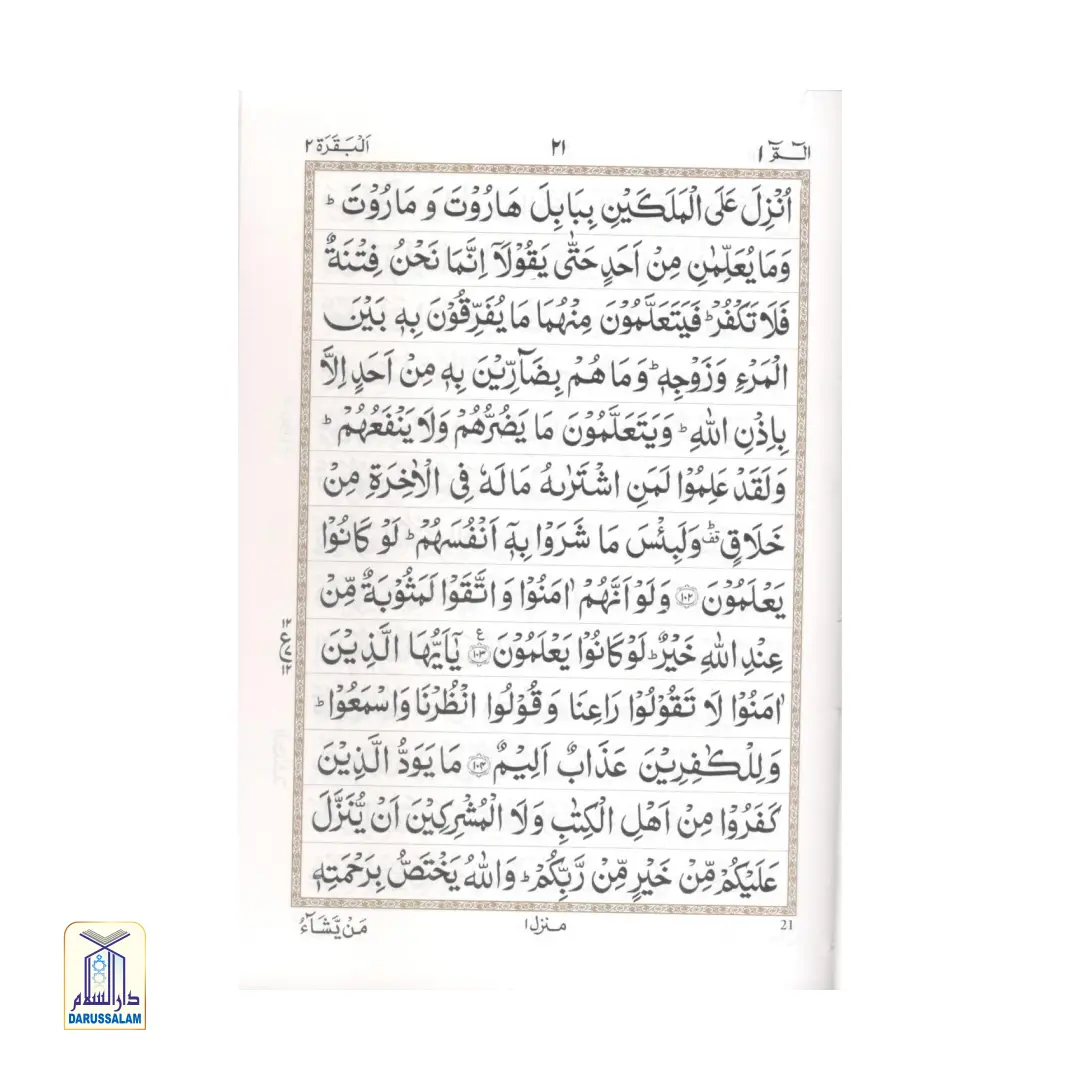 الٓمّٓ ١ ٢١ اَلْبَقَرَة ٢
اُنْزِلَ عَلَى الْمَلَكَيْنِ بِبَابِلَ هَارُوْتَ وَ مَارُوْتَ ؕ
وَمَا يُعَلِّمٰنِ مِنْ اَحَدٍ حَتّٰى يَقُوْلَاۤ اِنَّمَا نَحْنُ فِتْنَةٌ
فَلَا تَكْفُرْ ؕ فَيَتَعَلَّمُوْنَ مِنْهُمَا مَا يُفَرِّقُوْنَ بِهٖ بَيْنَ
الْمَرْءِ وَزَوْجِهٖ ؕ وَمَا هُمْ بِضَآرِّيْنَ بِهٖ مِنْ اَحَدٍ اِلَّا
بِاِذْنِ اللّٰهِ ؕ وَيَتَعَلَّمُوْنَ مَا يَضُرُّهُمْ وَلَا يَنْفَعُهُمْ ؕ
وَلَقَدْ عَلِمُوْا لَمَنِ اشْتَرٰىهُ مَا لَهٗ فِى الْاٰخِرَةِ مِنْ
خَلَاقٍ ؕقف وَلَبِئْسَ مَا شَرَوْا بِهٖۤ اَنْفُسَهُمْ ؕ لَوْ كَانُوْا
يَعْلَمُوْنَ ۝١٠٢ وَلَوْ اَنَّهُمْ اٰمَنُوْا وَاتَّقَوْا لَمَثُوْبَةٌ مِّنْ
عِنْدِ اللّٰهِ خَيْرٌ ؕ لَوْ كَانُوْا يَعْلَمُوْنَ ۝١٠٣ ع يٰۤاَيُّهَا الَّذِيْنَ
١٢
ع
١٢
اٰمَنُوْا لَا تَقُوْلُوْا رَاعِنَا وَقُوْلُوا انْظُرْنَا وَاسْمَعُوْا ؕ
وَلِلْكٰفِرِيْنَ عَذَابٌ اَلِيْمٌ ۝١٠٤ مَا يَوَدُّ الَّذِيْنَ
كَفَرُوْا مِنْ اَهْلِ الْكِتٰبِ وَلَا الْمُشْرِكِيْنَ اَنْ يُّنَزَّلَ
عَلَيْكُمْ مِّنْ خَيْرٍ مِّنْ رَّبِّكُمْ ؕ وَاللّٰهُ يَخْتَصُّ بِرَحْمَتِهٖ
21 منزل ١ مَنْ يَّشَآءُ
دارالسلام
DARUSSALAM